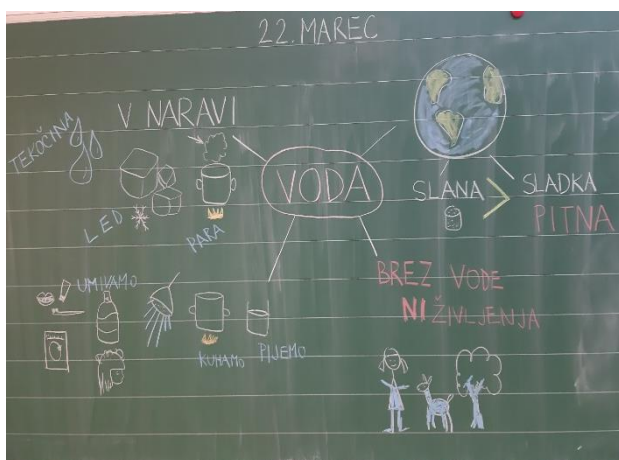 22. MAREC
V NARAVI
TEKOČINA
LED
PARA
VODA
SLANA > SLADKA
PITNA
UMIVAMO
KUHAMO
PIJEMO
BREZ VODE
NI ŽIVLJENJA